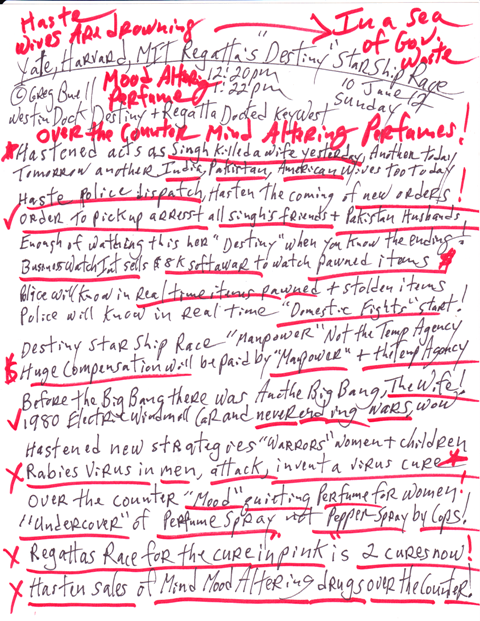 Haste
Wives Are drowning
In a sea
of Gov.
Waste
Yale, Harvard, MIT Regatta's "Destiny" Star Ship Race
Mood Altering
Perfume
12:20pm
1:22pm
10 June 12
Sunday
© Greg Buell
Westin Dock Destiny + Regatta Docked Key West
Over the Counter Mind Altering Perfumes!
Hastened acts as Singh killed a wife yesterday, Another today
Tomorrow another India, Pakistan, American wives too today
Haste police dispatch, Hasten the coming of new orders!
order to pick up arrest all singh's friends + Pakistan Husbands
Enough of watching this her "Destiny" when you know the ending!
Business Watch Int sells $8K softawar to watch pawned items
Police will know in real time items pawned + stolden items
Police will know in real time "Domestic Fights" start!
Destiny Star Ship Race "Manpower" Not the Temp Agency
$ Huge Compensation will be paid by "Manpower" + the Temp Agency
Before the Big Bang there was Anothe Big Bang, The Wife!
1980 Electric Windmill Car and never ending wars, wow
Hastened new strategies "Warrors" Women + children
X Rabies Virus in men, attack, invent a virus cure
Over the counter "Mood" quieting Perfume for women.
"Undercover" of Perfume Spray not Pepper Spray by Cops!
X Regattas Race for the cure in pink" is 2 cures now!
X Hasten sales of Mind Mood Altering drugs over the Counter!